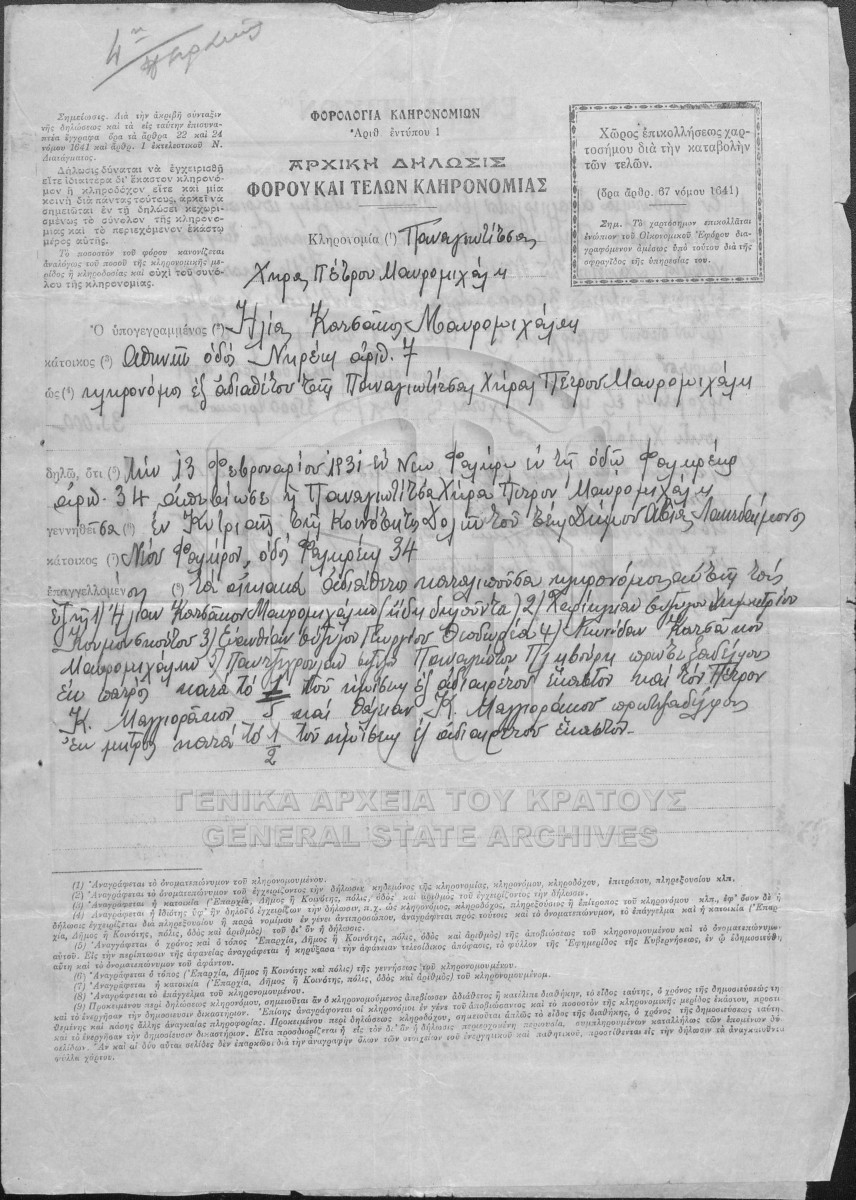 4η
Σημείωσις. Διὰ τὴν ἀκριβῆ σύνταξιν
τῆς δηλώσεως καὶ τὰ εἰς ταύτην ἐπισυνα-
πτέα ἔγγραφα ὅρα τὰ ἄρθρα 22 καὶ 24
νόμου 1641 καὶ ἄρθρ. 1 ἐκτελεστικοῦ Ν.
Διατάγματος.
Δήλωσις δύναται νὰ ἐγχειρισθῇ
εἴτε ἰδιαιτέρα δι' ἕκαστον κληρονό-
μον ἢ κληροδόχον εἴτε καὶ μία
κοινὴ διὰ πάντας τούτους, ἀρκεῖ νὰ
σημειοῦται ἐν τῇ δηλώσει κεχωρι-
σμένως τὸ σύνολον τῆς κληρονομί-
ας καὶ τὸ περιεχόμενον ἑκάστῳ
μέρος αὐτῆς.
Τὸ ποσοστὸν τοῦ φόρου κανονίζεται
ἀναλόγως τοῦ ποσοῦ τῆς κληρονομικῆς με-
ρίδος ἢ κληροδοσίας καὶ οὐχὶ τοῦ συνό-
λου τῆς κληρονομίας.
ΦΟΡΟΛΟΓΙΑ ΚΛΗΡΟΝΟΜΙΩΝ
Ἀριθ. ἐντύπου 1
ΑΡΧΙΚΗ ΔΗΛΩΣΙΣ
ΦΟΡΟΥ ΚΑΙ ΤΕΛΩΝ ΚΛΗΡΟΝΟΜΙΑΣ
Χῶρος ἐπικολλήσεως χαρ-
τοσήμου διὰ τὴν καταβολὴν
τῶν τελῶν.
(ὅρα ἄρθρ. 67 νόμου 1641)
Σημ. Τὸ χαρτόσημον ἐπικολλᾶται
ἐνώπιον τοῦ Οἰκονομικοῦ Ἐφόρου δια-
γραφόμενον ἀμέσως ὑπὸ τούτου διὰ τῆς
σφραγῖδος τῆς ὑπηρεσίας του.
Κληρονομία (¹) Παναγιωτίτσας
Χήρας Πέτρου Μαυρομιχάλη
Ὁ ὑπογεγραμμένος (²) Ἠλίας Κατσάκος Μαυρομιχάλης
κάτοικος (³) Ἀθηνῶν ὁδὸς Νηρέως ἀριθ. 7
ὡς (⁴) κληρονόμος ἐξ ἀδιαθέτου τῆς Παναγιωτίτσας Χήρας Πέτρου Μαυρομιχάλη
δηλῶ, ὅτι (⁵) τὴν 13 Φεβρουαρίου 1931 ἐν Νέῳ Φαλήρῳ ἐν τῇ ὁδῷ Φαλήρεως
ἀριθ. 34 ἀπεβίωσε ἡ Παναγιωτίτσα Χήρα Πέτρου Μαυρομιχάλη
γεννηθεῖσα (⁶) ἐν Κιτριαῖς τῆς Κοινότητος Δολῶν τοῦ τέως Δήμου Ἀβίας Λακεδαίμονος
κάτοικος (⁷) Νέου Φαλήρου, ὁδὸς Φαλήρεως 34
ἐπαγγελλομένη (⁸) τὰ οἰκιακὰ ἀδιάθετος καταλιποῦσα κληρονόμους αὐτῆς τοὺς
ἑξῆς 1) Ἠλίαν Κατσάκον Μαυρομιχάλην (ἤδη δηλοῦντα) 2) Χαρίκλειαν σύζυγον Δημητρίου
3) Εὐανθίαν σύζυγον Γεωργίου Θεοδωρέα 4) Κατσάκου
Μαυρομιχάλην 5) σύζυγον Παναγιώτου πρωτεξαδέλφους
ἐκ πατρὸς κατὰ τὸ 1/5 τοῦ ἡμίσεως ἐξ ἀδιαιρέτου ἕκαστον καὶ τὸν Πέτρον
Κ. Μαγιοράκον καὶ Κ. Μαγιοράκου πρωτεξαδέλφους
ἐκ μητρὸς κατὰ τὸ 1/2 τοῦ ἡμίσεως ἐξ ἀδιαιρέτου ἕκαστον.
ΓΕΝΙΚΑ ΑΡΧΕΙΑ ΤΟΥ ΚΡΑΤΟΥΣ
GENERAL STATE ARCHIVES
(1) Ἀναγράφεται τὸ ὀνοματεπώνυμον τοῦ κληρονομουμένου.
(2) Ἀναγράφεται τὸ ὀνοματεπώνυμον τοῦ ἐγχειρίζοντος τὴν δήλωσιν κηδεμόνος τῆς κληρονομίας, κληρονόμου, κληροδόχου, ἐπιτρόπου, πληρεξουσίου κλπ.
(3) Ἀναγράφεται ἡ κατοικία (Ἐπαρχία, Δῆμος ἢ Κοινότης, πόλις, ὁδὸς καὶ ἀριθμὸς) τοῦ ἐγχειρίζοντος τὴν δήλωσιν.
(4) Ἀναγράφεται ἡ ἰδιότης ὑφ' ἣν δηλοῖ ὁ ἐγχειρίζων τὴν δήλωσιν, π.χ. ὡς κληρονόμος, κληροδόχος, πληρεξούσιος ἢ ἐπίτροπος τοῦ κληρονόμου κλπ., ἐφ' ὅσον δὲ ἡ
δήλωσις ἐγχειρίζεται διὰ πληρεξουσίου ἢ παρὰ νομίμου ἐν γένει ἀντιπροσώπου, ἀναγράφεται πρὸς τούτοις καὶ τὸ ὀνοματεπώνυμον, τὸ ἐπάγγελμα καὶ ἡ κατοικία (Ἐπαρ-
χία, Δῆμος ἢ Κοινότης, πόλις, ὁδὸς καὶ ἀριθμὸς) τοῦ δι' ὃν ἡ δήλωσις.
(5) Ἀναγράφεται ὁ χρόνος καὶ ὁ τόπος Ἐπαρχία, Δῆμος ἢ Κοινότης, πόλις, ὁδὸς καὶ ἀριθμὸς) τῆς ἀποβιώσεως τοῦ κληρονομουμένου καὶ τὸ ὀνοματεπώνυμον
αὐτοῦ. Εἰς τὴν περίπτωσιν τῆς ἀφανείας ἀναγράφεται ἡ κηρύξασα τὴν ἀφάνειαν τελεσίδικος ἀπόφασις, τὸ φύλλον τῆς Ἐφημερίδος τῆς Κυβερνήσεως, ἐν ᾧ ἐδημοσιεύθη
αὕτη καὶ τὸ ὀνοματεπώνυμον τοῦ ἀφάντου.
(6) Ἀναγράφεται ὁ τόπος (Ἐπαρχία, Δῆμος ἢ Κοινότης καὶ πόλις) τῆς γεννήσεως τοῦ κληρονομουμένου.
(7) Ἀναγράφεται ἡ κατοικία (Ἐπαρχία, Δῆμος ἢ Κοινότης, πόλις, ὁδὸς καὶ ἀριθμὸς) τοῦ κληρονομουμένου.
(8) Ἀναγράφεται τὸ ἐπάγγελμα τοῦ κληρονομουμένου.
(9) Προκειμένου περὶ δηλώσεως κληρονόμου, σημειοῦται ἂν ὁ κληρονομούμενος ἀπεβίωσεν ἀδιάθετος ἢ κατέλιπε διαθήκην, τὸ εἶδος ταύτης, ὁ χρόνος τῆς δημοσιεύσεώς της
καὶ τὸ ἐνεργῆσαν τὴν δημοσίευσιν δικαστήριον. Ἐπίσης ἀναγράφονται οἱ κληρονόμοι ἐν γένει τοῦ ἀποβιώσαντος καὶ τὸ ποσοστὸν τῆς κληρονομικῆς μερίδος ἑκάστου, προστι-
θεμένης καὶ πάσης ἄλλης ἀναγκαίας πληροφορίας. Προκειμένου περὶ δηλώσεως κληροδόχου, σημειοῦται ἁπλῶς τὸ εἶδος τῆς διαθήκης, ὁ χρόνος τῆς δημοσιεύσεως ταύτης
καὶ τὸ ἐνεργῆσαν τὴν δημοσίευσιν δικαστήριον. Εἶτα προσδιορίζεται ἡ εἰς τὸν δι' ὃν ἡ δήλωσις περιερχομένη περιουσία, συμπληρουμένων καταλλήλως τῶν ἑπομένων δύο
σελίδων. Ἂν καὶ αἱ δύο αὗται σελίδες δὲν ἐπαρκῶσι διὰ τὴν ἀναγραφὴν ὅλων τῶν στοιχείων τοῦ ἐνεργητικοῦ καὶ παθητικοῦ, προστίθενται εἰς τὴν δήλωσιν τὰ ἀναγκαιοῦντα
φύλλα χάρτου.